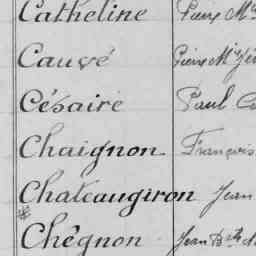 Catheline Pierre
Cauvé Pierre
Césaire Paul
Chaignon François
Chateaugiron Jean
Chêgnon Jean Bte